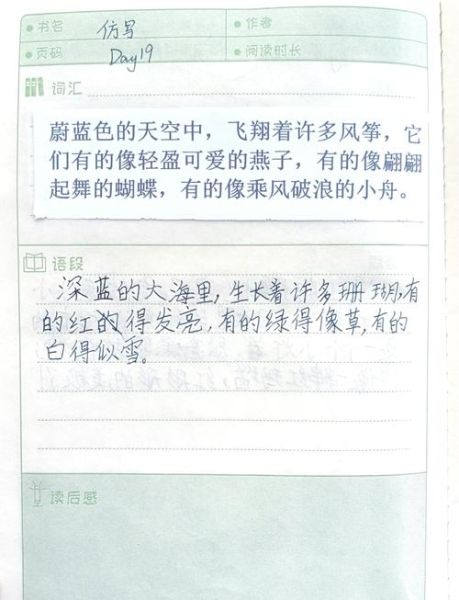 书名 仿写 作者
页码 Day19 阅读时长
词汇
蔚蓝色的天空中，飞翔着许多风筝，它
们有的像轻盈可爱的燕子，有的像翩翩
起舞的蝴蝶，有的像乘风破浪的小舟。
语段
深蓝的大海里，生长着许多珊瑚，有
的红的得发亮，有的绿得像草，有的
白得似雪。
读后感